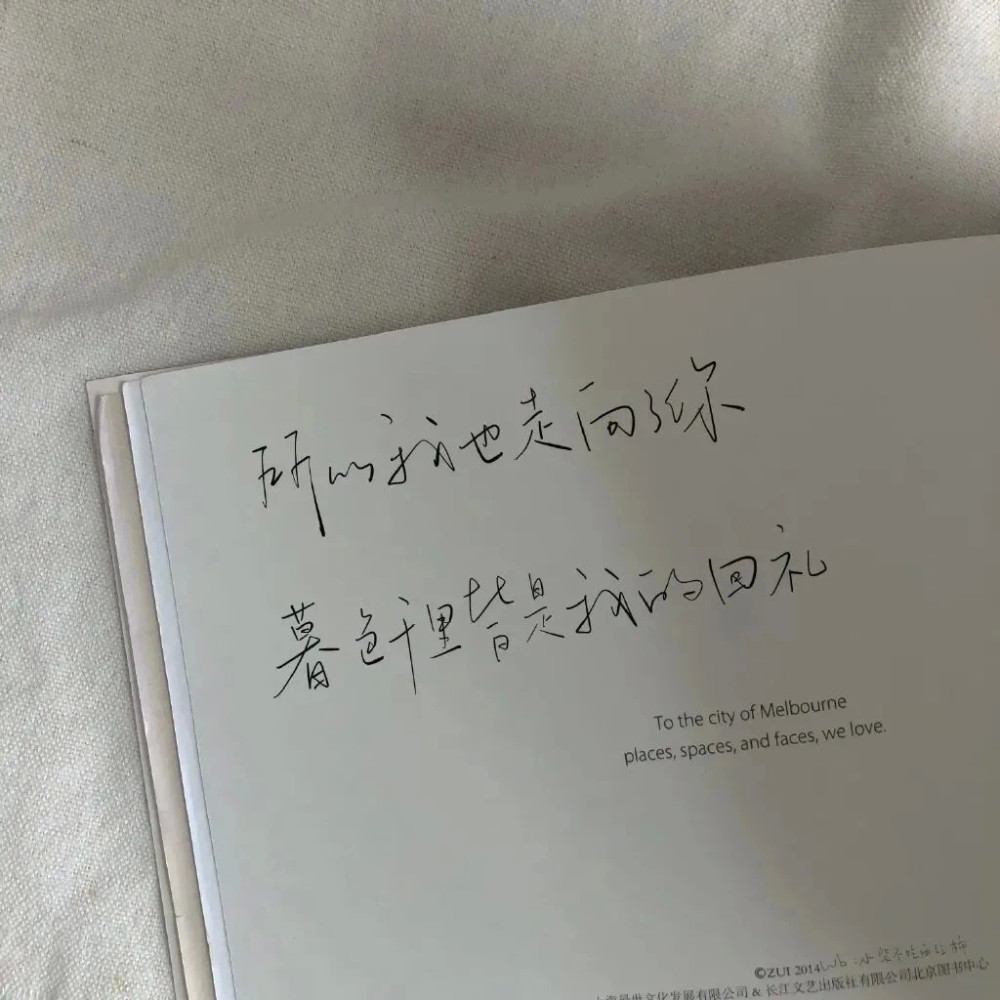 所以我也走向了你
暮色千里皆是我的回礼
To the city of Melbourne
places, spaces, and faces, we love.
©ZUI 2014
上海最世文化发展有限公司 & 长江文艺出版社有限公司北京图书中心